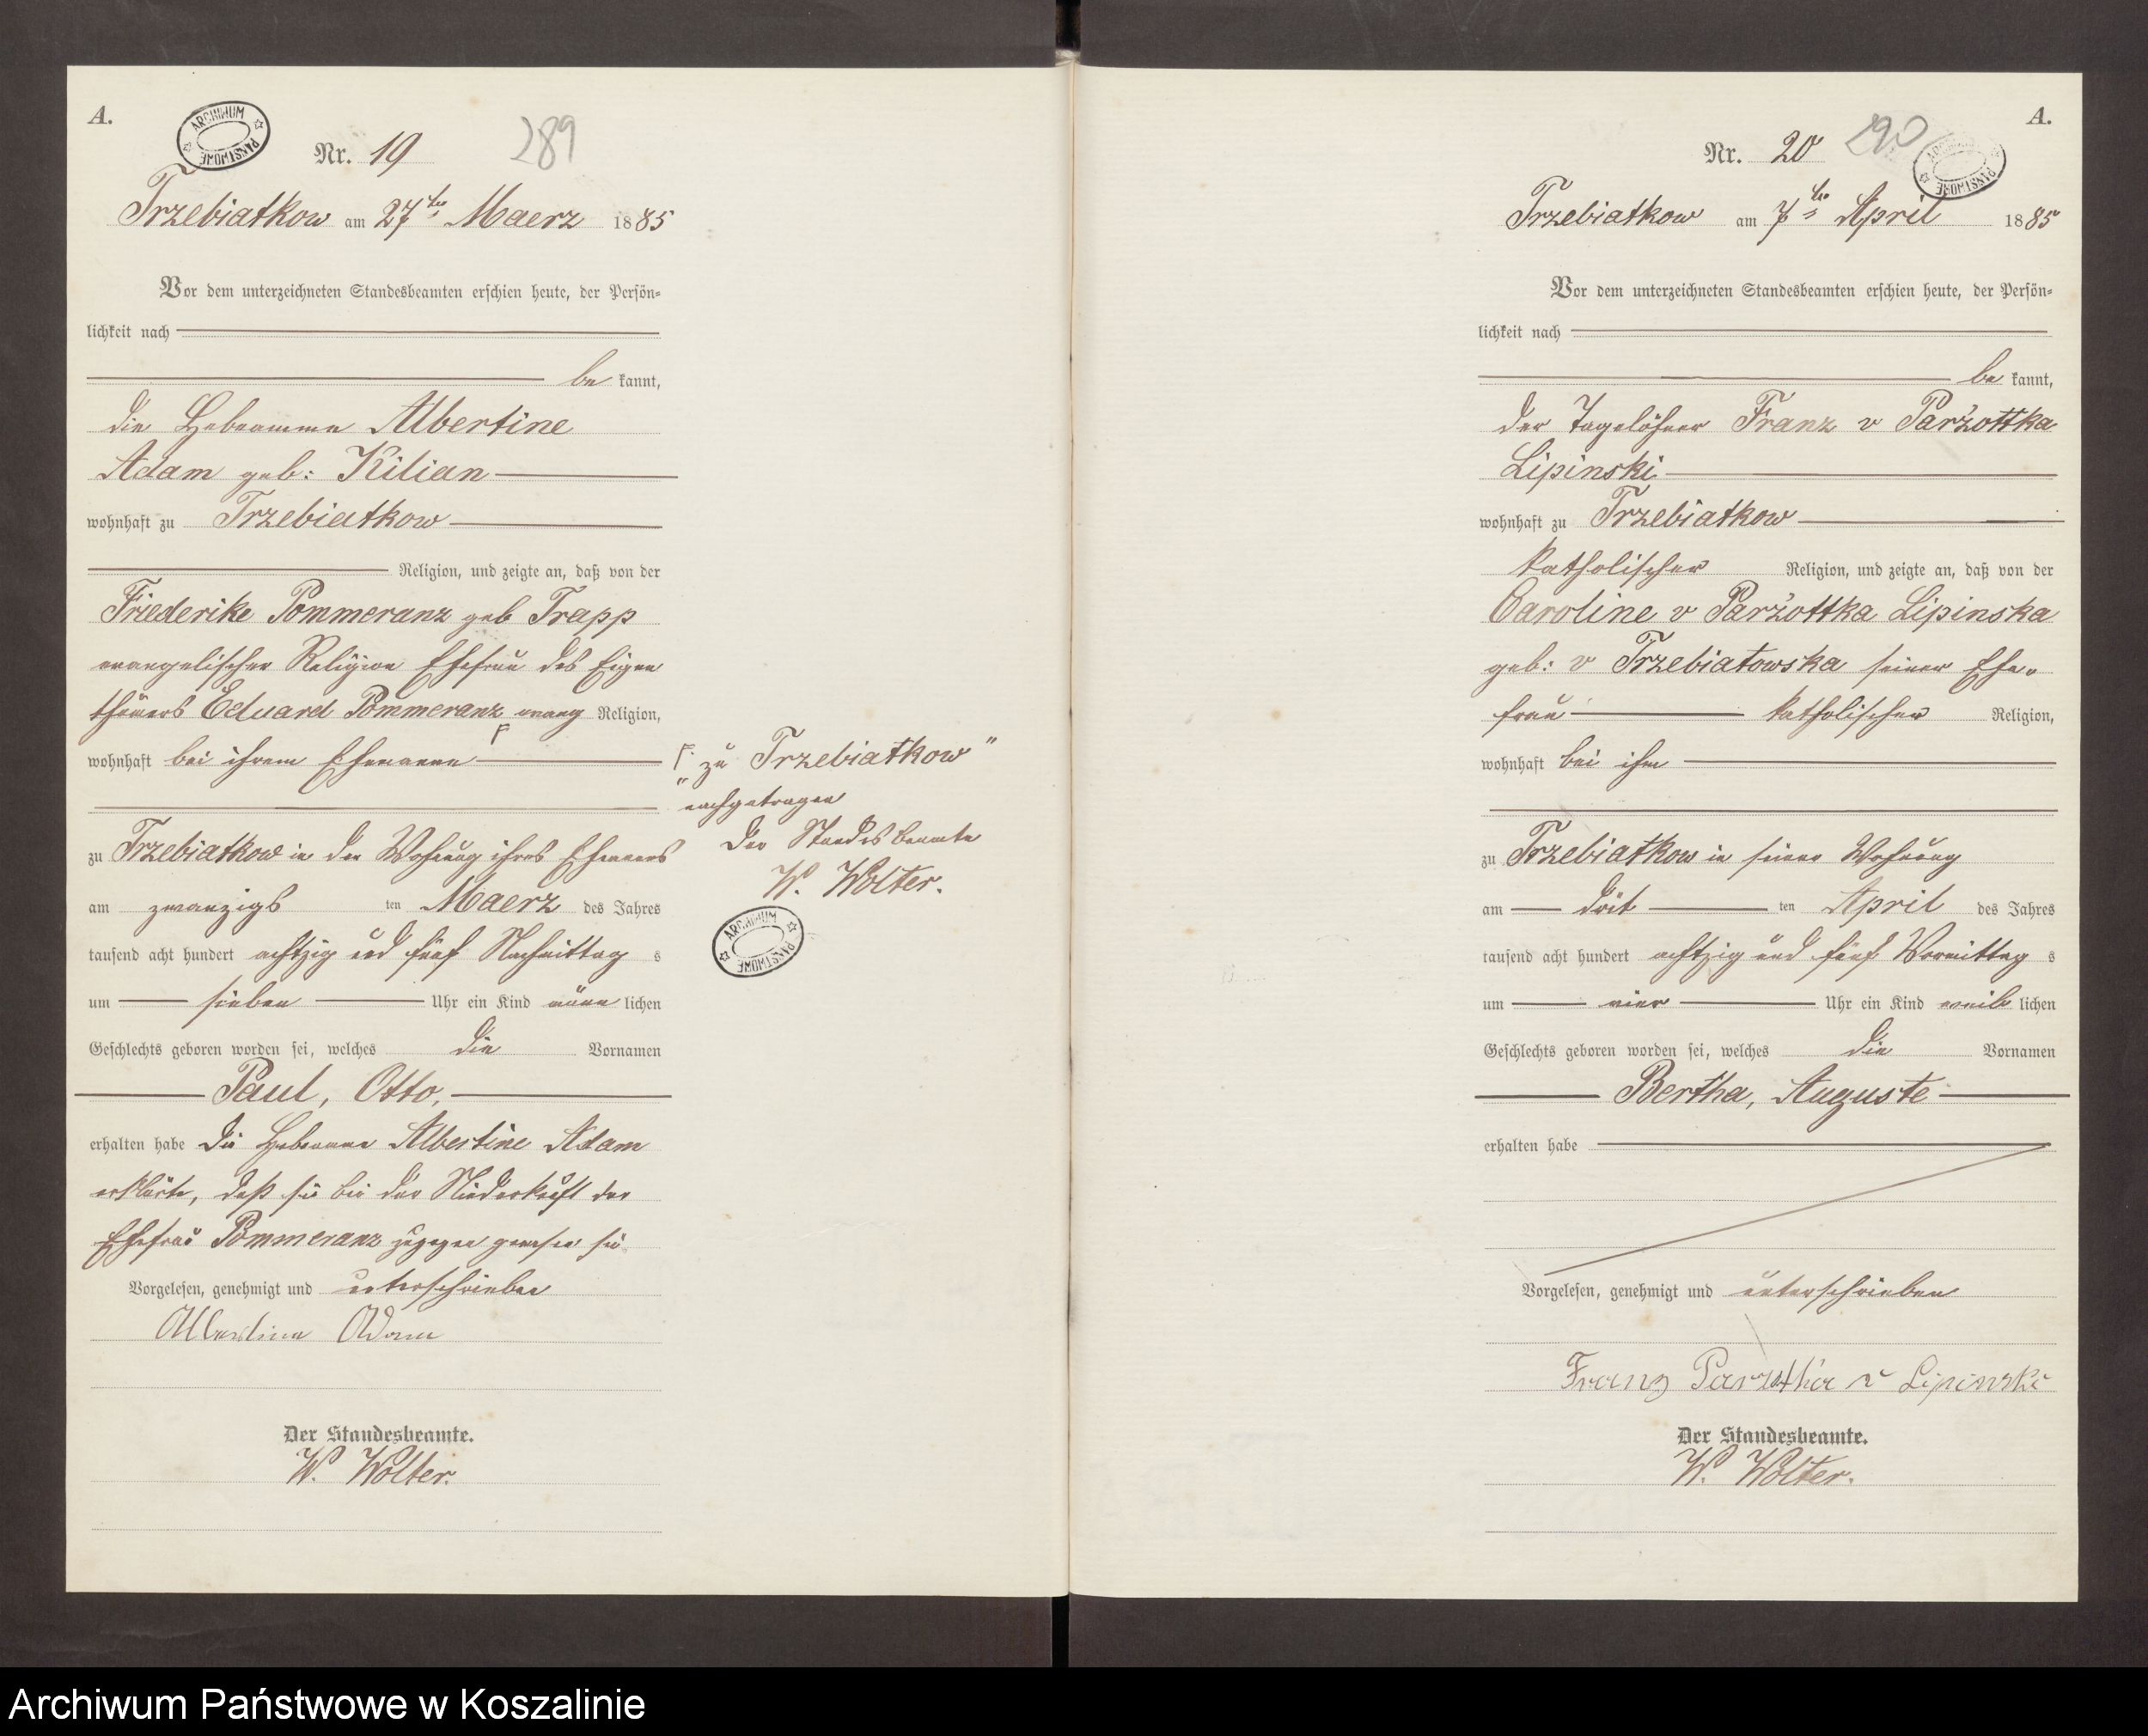 A.
ARCHIWUM PAŃSTWOWE
Nr. 19
289
Trzebiatkow am 27ten Maerz 1885
Vor dem unterzeichneten Standesbeamten erschien heute, der Persön-
lichkeit nach
be kannt,
die Hebeamme Albertine
Adam geb: Kilian
wohnhaft zu Trzebiatkow
Religion, und zeigte an, daß von der
Friederike Pommeranz geb Trapp
evangelischer Religion Ehefrau des Eigen
thümers Eduard Pommeranz evang Religion,
wohnhaft bei ihrem Ehemanne
zu Trzebiatkow in der Wohnung ihres Ehemanns
am zwanzigs ten Maerz des Jahres
tausend acht hundert achtzig und fünf Nachmittag s
um sieben Uhr ein Kind männ lichen
Geschlechts geboren worden sei, welches die Vornamen
Paul, Otto,
erhalten habe Die Hebamme Albertine Adam
erklärte, daß sie bei der Niederkunft der
Ehefrau Pommeranz zugegen gewesen sei
Vorgelesen, genehmigt und unterschrieben
Albertine Adam
Der Standesbeamte.
W. Wolter.
"zu Trzebiatkow"
nachgetragen
Der Standesbeamte
W. Wolter.
ARCHIWUM PAŃSTWOWE
A.
Nr. 20
290
ARCHIWUM PAŃSTWOWE
Trzebiatkow am 7ten April 1885
Vor dem unterzeichneten Standesbeamten erschien heute, der Persön-
lichkeit nach
be kannt,
der Tagelöhner Franz v Parżottka
Lipinski
wohnhaft zu Trzebiatkow
katholischer Religion, und zeigte an, daß von der
Caroline v Parżottka Lipinska
geb: v Trzebiatowska seiner Ehe-
frau katholischer Religion,
wohnhaft bei ihm
zu Trzebiatkow in seiner Wohnung
am drit ten April des Jahres
tausend acht hundert achtzig und fünf Vormittag s
um vier Uhr ein Kind weib lichen
Geschlechts geboren worden sei, welches die Vornamen
Bertha, Auguste
erhalten habe
Vorgelesen, genehmigt und unterschrieben
Franz v Lipinski
Der Standesbeamte.
W. Wolter.
Archiwum Państwowe w Koszalinie